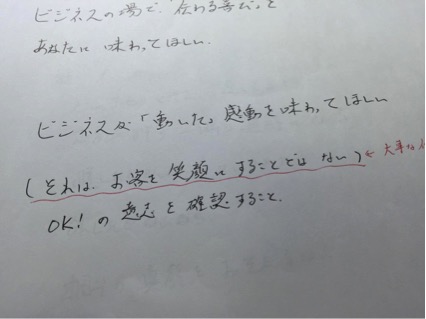 ビジネスの場で「伝わる喜び」を
あなたに 味わってほしい.
ビジネスが「動いた」感動を味わってほしい
(それは. お客を笑顔にすることではない) ← 大事な
OK! の 意志を確認すること.